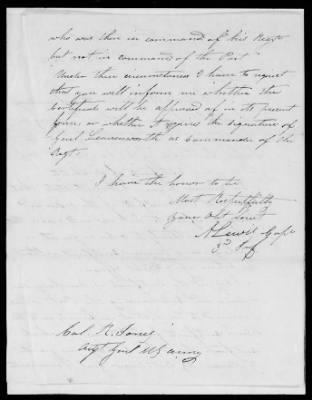 who was then in command of his Regt
but not in command of the Post"
Under these circumstances I have to request
that you will inform me whether the
Certificate will be approved of in its present
form, or whether it requires the signature of
Genl Leavenworth as Commander of the
Regt.
I have the honor to be
Most Respectfully
Your Obt Servt
A Lewis Capt
3d Inf
Col. R. Jones
Adjt Genl U S Army